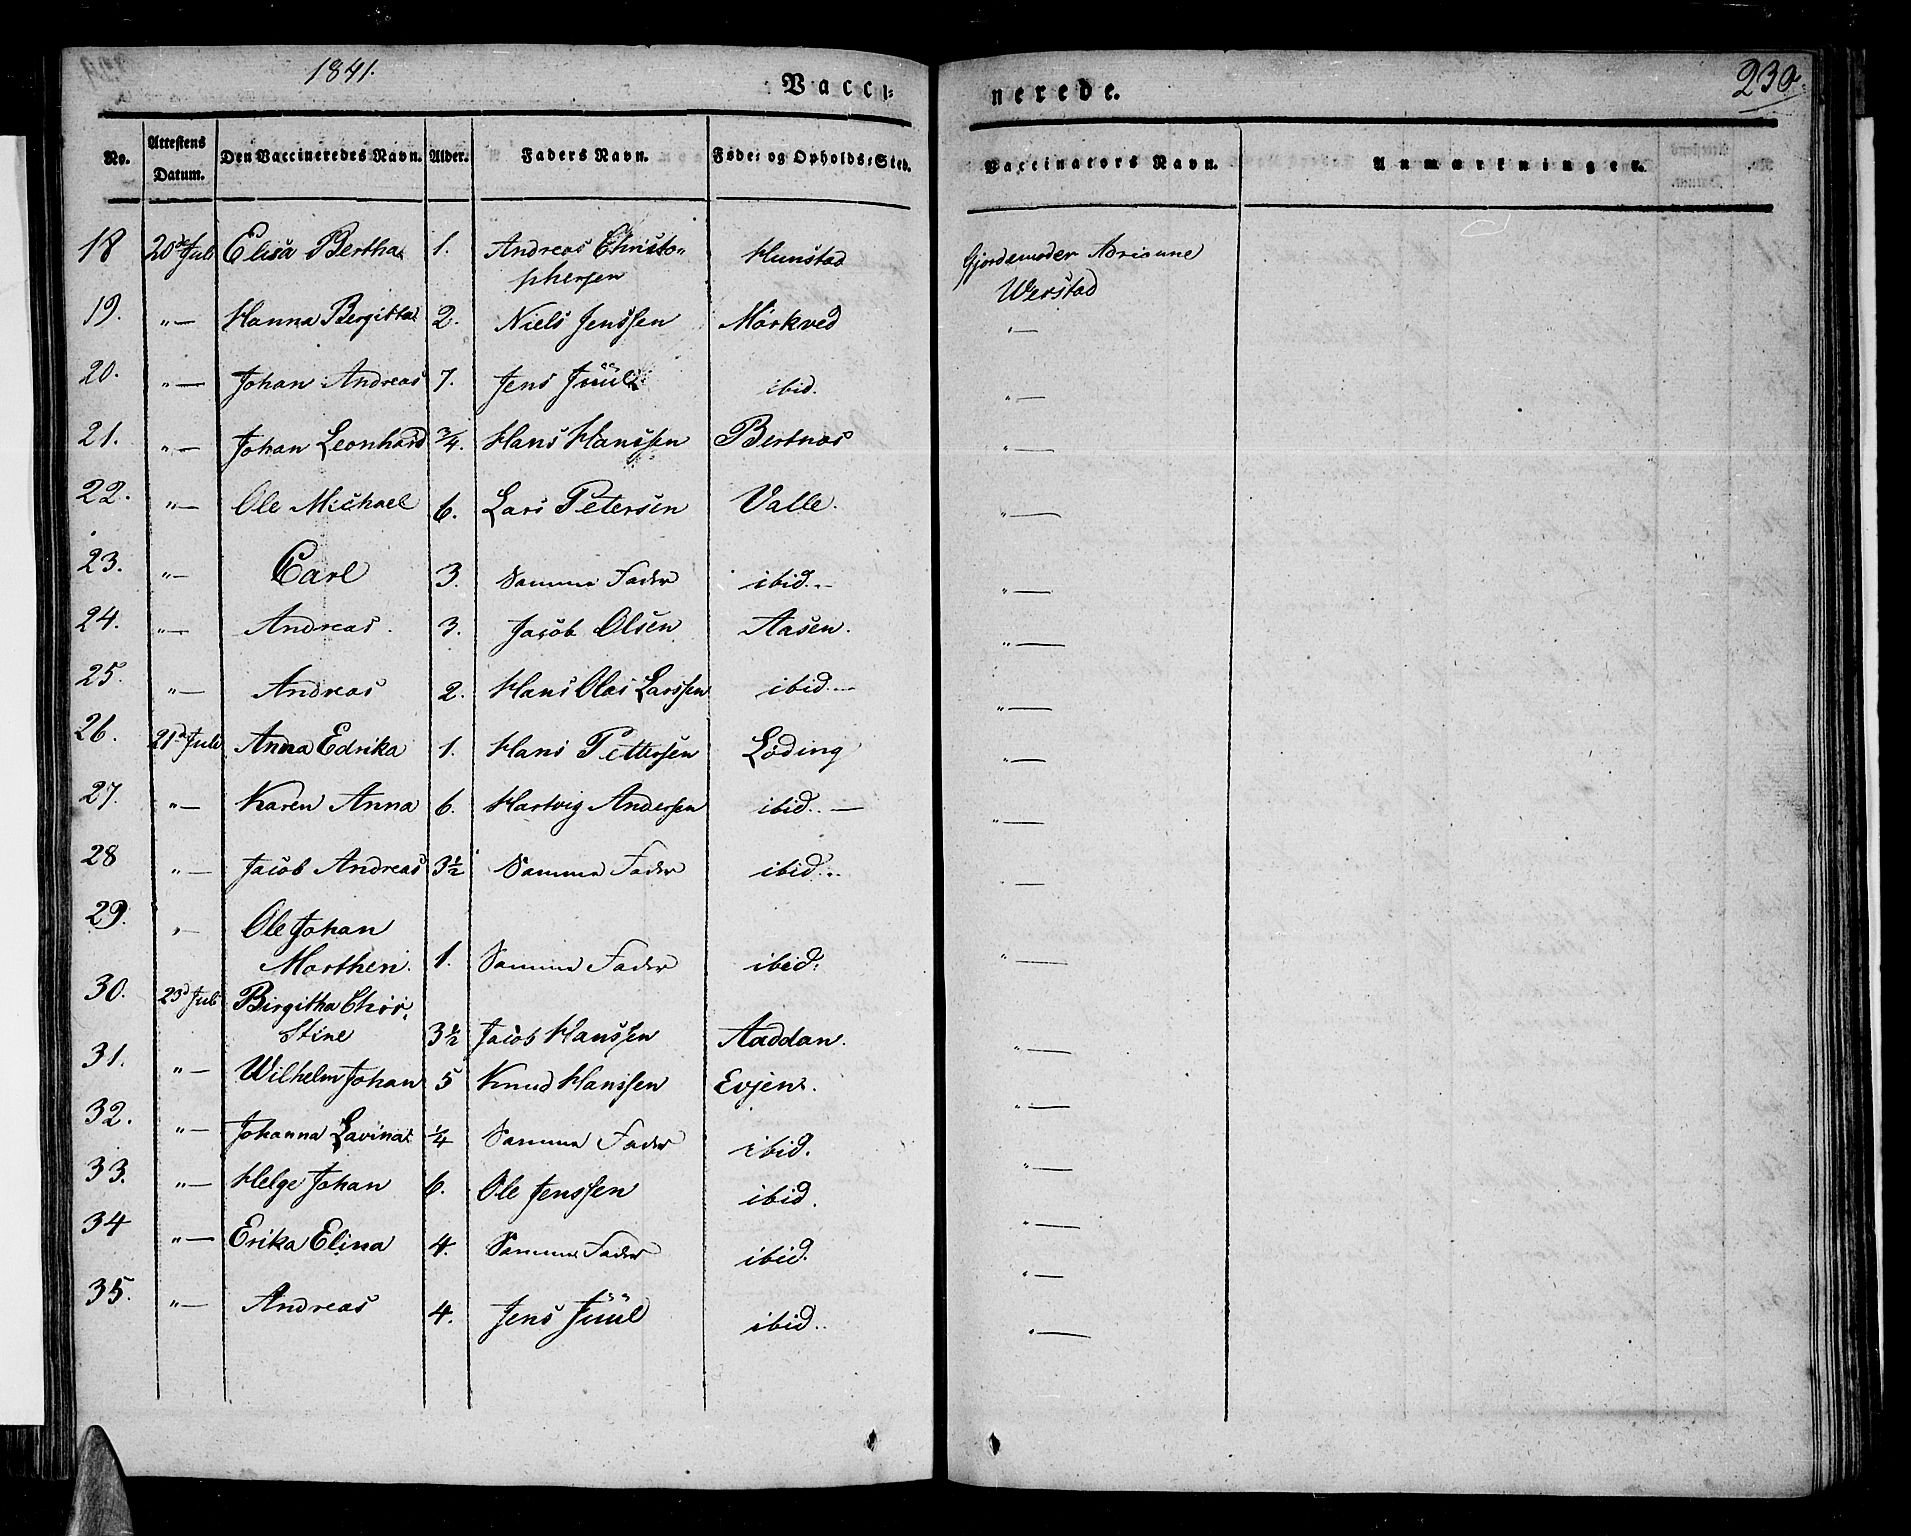 1841.
230
Vacci-
nerede.
No. Attestens Datum. Den Vaccineredes Navn. Alder. Faders Navn. Føde- og Opholds-Sted. Vaccinators Navn. Anmærkninger.
18 20d Juli Elisa Bertha 1. Andreas Christo- Hunstad Gjordemoder Adrianne
phersen Werstad
19. "— Hanna Bergitta 2. Niels Jenssen Mörkved "—
20. "— Johan Andreas 7. Jens Jüül ibid. "—
21. "— Johan Leonhard 3/4. Hans Hanssen Bertnæs "—
22. "— Ole Michael 6. Lars Petersen Valle. "—
23. "— Carl 3. Samme Fader ibid.- "—
24. "— Andreas. 3. Jacob Olsen Aasen. "—
25. "— Andreas 2. Hans Olai Larssen ibid.- "—
26. 21d Juli Anna Edrika 1. Hans Pettersen Løding "—
27. "— Karen Anna 6. Hartvig Andersen ibid. — "—
28 "— Jacob Andreas 3½ Samme Fader ibid.. "—
29. "— Ole Johan
Marthin. 1. Samme Fader ibid: "—
30. 23d Juli Birgitha Chri-
stine 3½ Jacob Hanssen Aaddan. "—
31. "— Wilhelm Johan 5 Knud Hanssen Evjen. "—
32. "— Johanna Lavina 1/4 Samme Fader ibid. "—
33. "— Helge Johan 6. Ole Jenssen ibid. "—
34 "— Erika Elina 4. Samme Fader ibid. "—
35. "— Andreas 4. Jens Jüül ibid.. "—